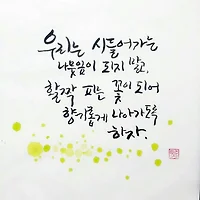 우리는 시들어가는
나뭇잎이 되지 말고,
활짝 피는 꽃이 되어
향기롭게 나아가도록
하자.